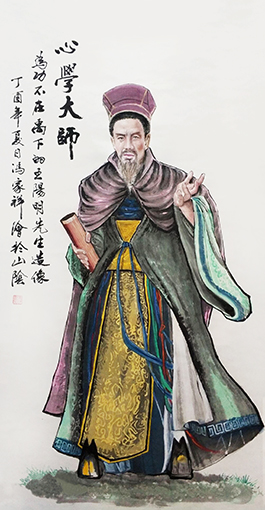 心學大師
為功不在禹下的王陽明先生造像
丁酉年夏日馮家祥繪於山陰